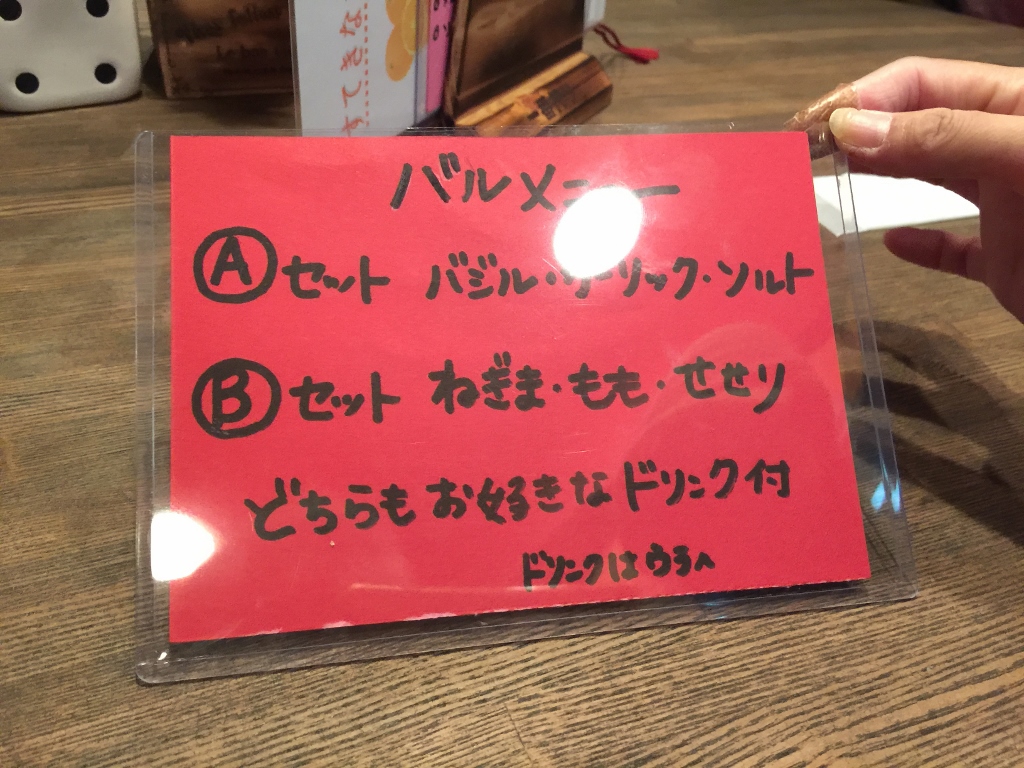 バルメニュー
Ⓐセット バジル・ガーリック・ソルト
Ⓑセット ねぎま・もも・せせり
どちらもお好きなドリンク付
ドリンクはウラへ